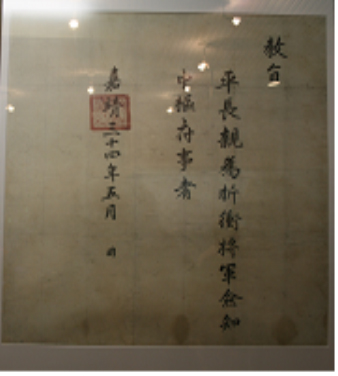 教旨
平長親為折衝將軍僉知
中樞府事者
嘉靖三十四年五月 日